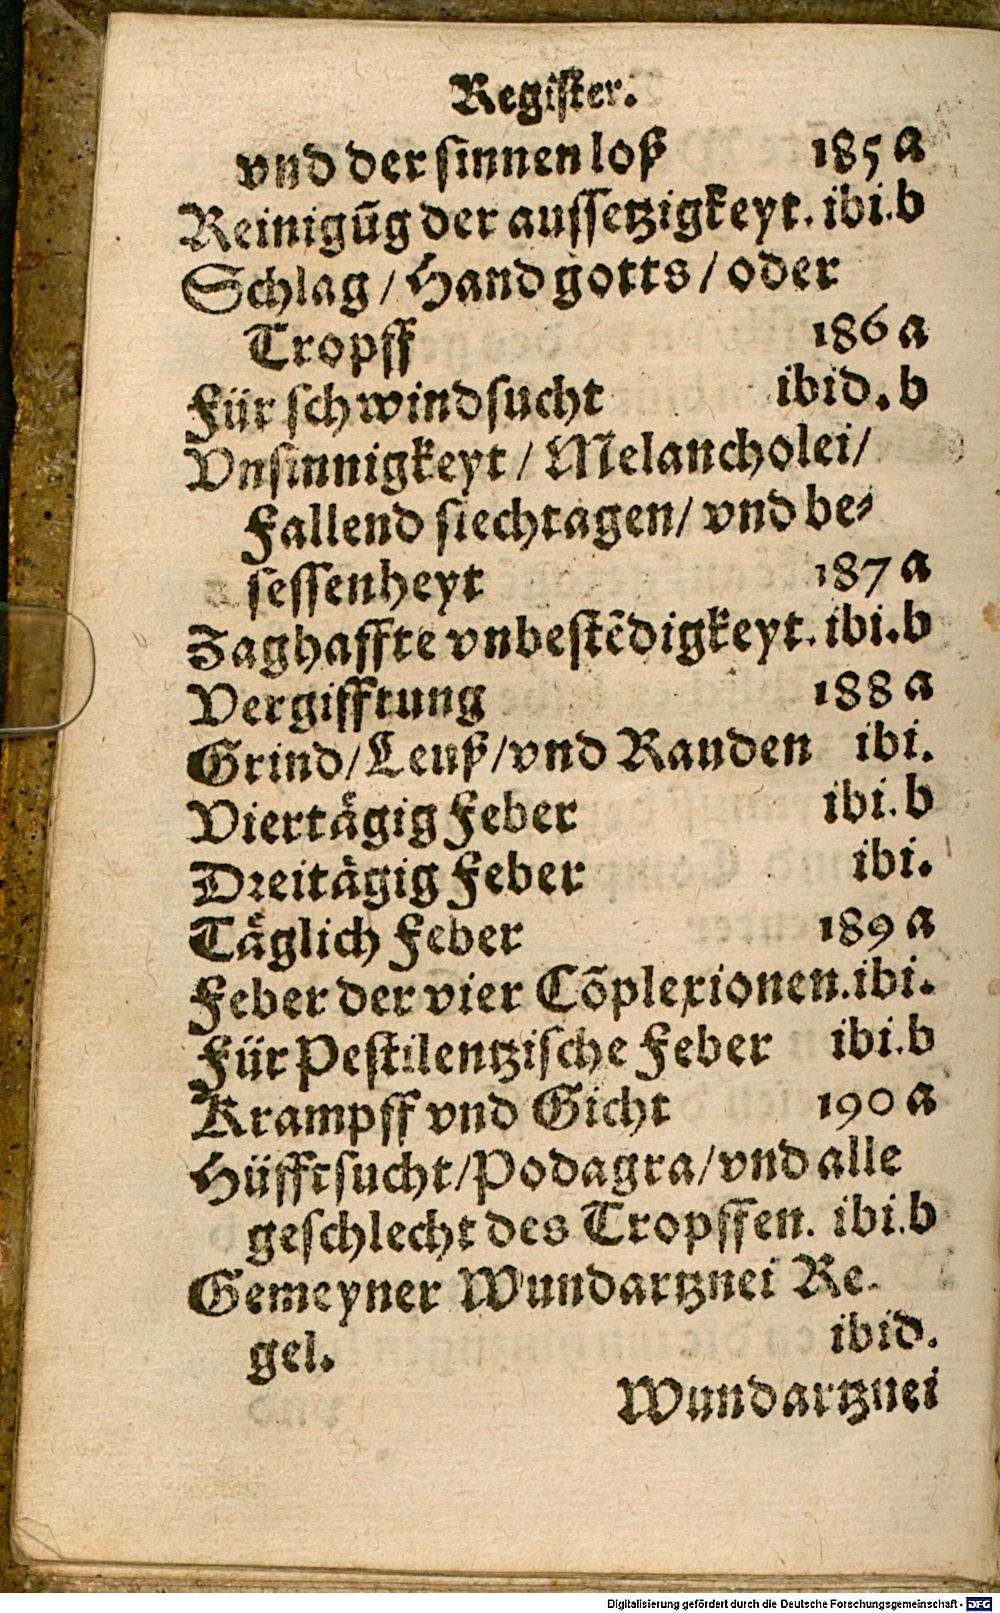 Register.
vnd der sinnen loß 185 a
Reinigūg der aussetzigkeyt. ibi.b
Schlag / Hand gotts / oder
Tropff 186 a
Für schwindsucht ibid. b
Vnsinnigkeyt / Melancholei/
Fallend siechtagen/ vnd be⸗
sessenheyt 187 a
Zaghaffte vnbestēdigkeyt. ibi.b
Vergifftung 188 a
Grind/Leuß/vnd Rauden ibi.
Viertägig Feber ibi.b
Dreitägig Feber ibi.
Täglich Feber 189 a
Feber der vier Cōplexionen.ibi.
Für Pestilentzische Feber ibi.b
Krampff vnd Gicht 190 a
Hüfftsucht/Podagra/vnd alle
geschlecht des Tropffen. ibi.b
Gemeyner Wundartznei Re⸗
gel. ibid.
Wundartznei
Digitalisierung gefördert durch die Deutsche Forschungsgemeinschaft - DFG